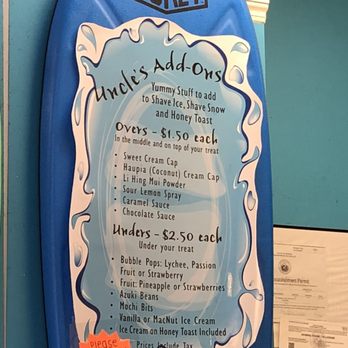 Uncle's Add-Ons
Yummy Stuff to add
to Shave Ice, Shave Snow
and Honey Toast
Overs - $1.50 each
In the middle and on top of your treat
• Sweet Cream Cap
• Haupia (Coconut) Cream Cap
• Li Hing Mui Powder
• Sour Lemon Spray
• Caramel Sauce
• Chocolate Sauce
Unders - $2.50 each
Under your treat
• Bubble Pops: Lychee, Passion
Fruit or Strawberry
• Fruit: Pineapple or Strawberries
• Azuki Beans
• Mochi Bits
• Vanilla or MacNut Ice Cream
• Ice Cream on Honey Toast Included
Prices Include Tax
Please